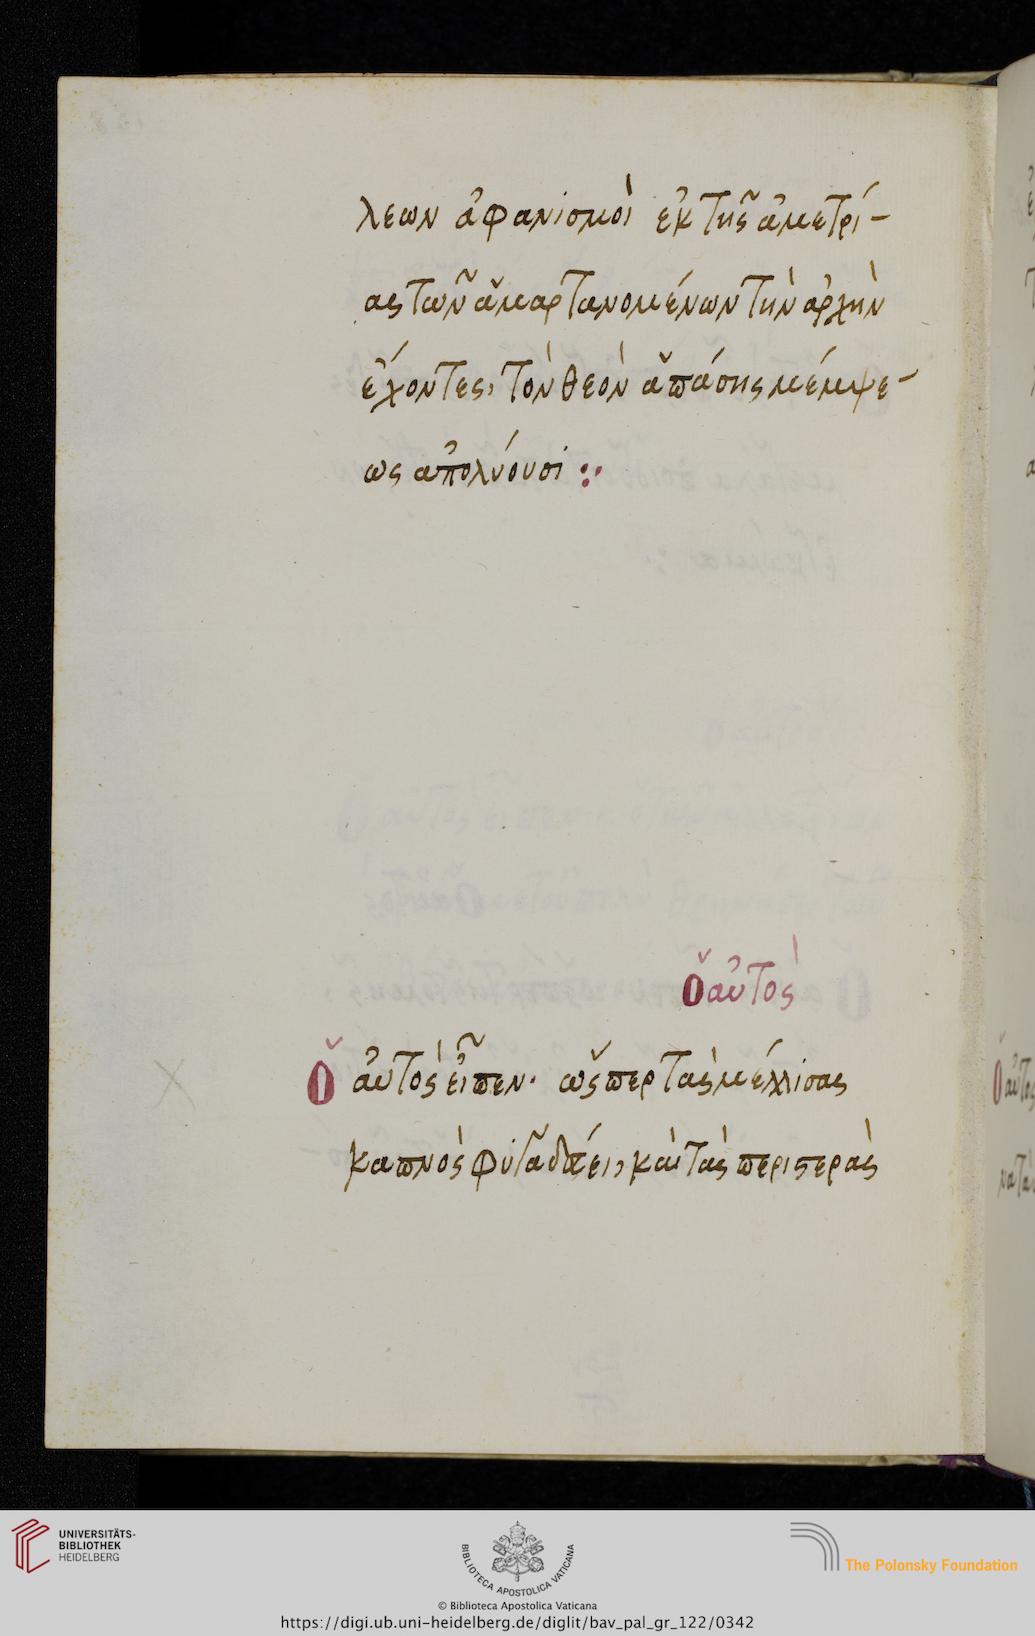 λεων ἀφανισμοὶ ἐκ τῆς ἀμετρί-
ας τῶν ἁμαρτανομένων τὴν ἀρχὴν
ἔχοντες, τὸν θεὸν ἁπάσης μέμψε-
ως ἀπολύουσι :·
Ὁ αὐτὸς
Ὁ αὐτὸς εἶπεν· ὥσπερ τὰς μελίσσας
καπνὸς φυγαδεύει, καὶ τὰς περιστερὰς
UNIVERSITÄTS-
BIBLIOTHEK
HEIDELBERG
BIBLIOTECA APOSTOLICA VATICANA
The Polonsky Foundation
© Biblioteca Apostolica Vaticana
https://digi.ub.uni-heidelberg.de/diglit/bav_pal_gr_122/0342